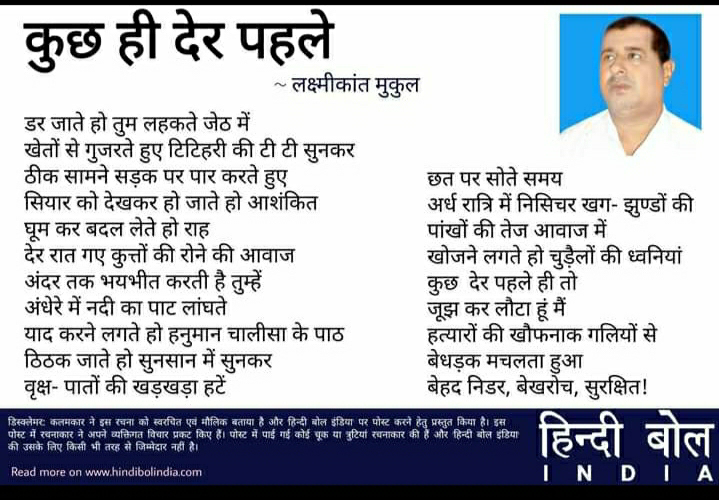 कुछ ही देर पहले
~ लक्ष्मीकांत मुकुल
डर जाते हो तुम लहकते जेठ में
खेतों से गुजरते हुए टिटिहरी की टी टी सुनकर
ठीक सामने सड़क पर पार करते हुए
सियार को देखकर हो जाते हो आशंकित
घूम कर बदल लेते हो राह
देर रात गए कुत्तों की रोने की आवाज
अंदर तक भयभीत करती है तुम्हें
अंधेरे में नदी का पाट लांघते
याद करने लगते हो हनुमान चालीसा के पाठ
ठिठक जाते हो सुनसान में सुनकर
वृक्ष- पातों की खड़खड़ा हटें
छत पर सोते समय
अर्ध रात्रि में निसिचर खग- झुण्डों की
पांखों की तेज आवाज में
खोजने लगते हो चुड़ैलों की ध्वनियां
कुछ देर पहले ही तो
जूझ कर लौटा हूं मैं
हत्यारों की खौफनाक गलियों से
बेधड़क मचलता हुआ
बेहद निडर, बेखरोच, सुरक्षित!
डिस्क्लेमर: कलमकार ने इस रचना को स्वरचित एवं मौलिक बताया है और हिन्दी बोल इंडिया पर पोस्ट करने हेतु प्रस्तुत किया है। इस
पोस्ट में रचनाकार ने अपने व्यक्तिगत विचार प्रकट किए हैं। पोस्ट में पाई गई कोई चूक या त्रुटियां रचनाकार की हैं और हिन्दी बोल इंडिया
की उसके लिए किसी भी तरह से जिम्मेदार नहीं है।
Read more on www.hindibolindia.com
हिन्दी बोल
INDIA